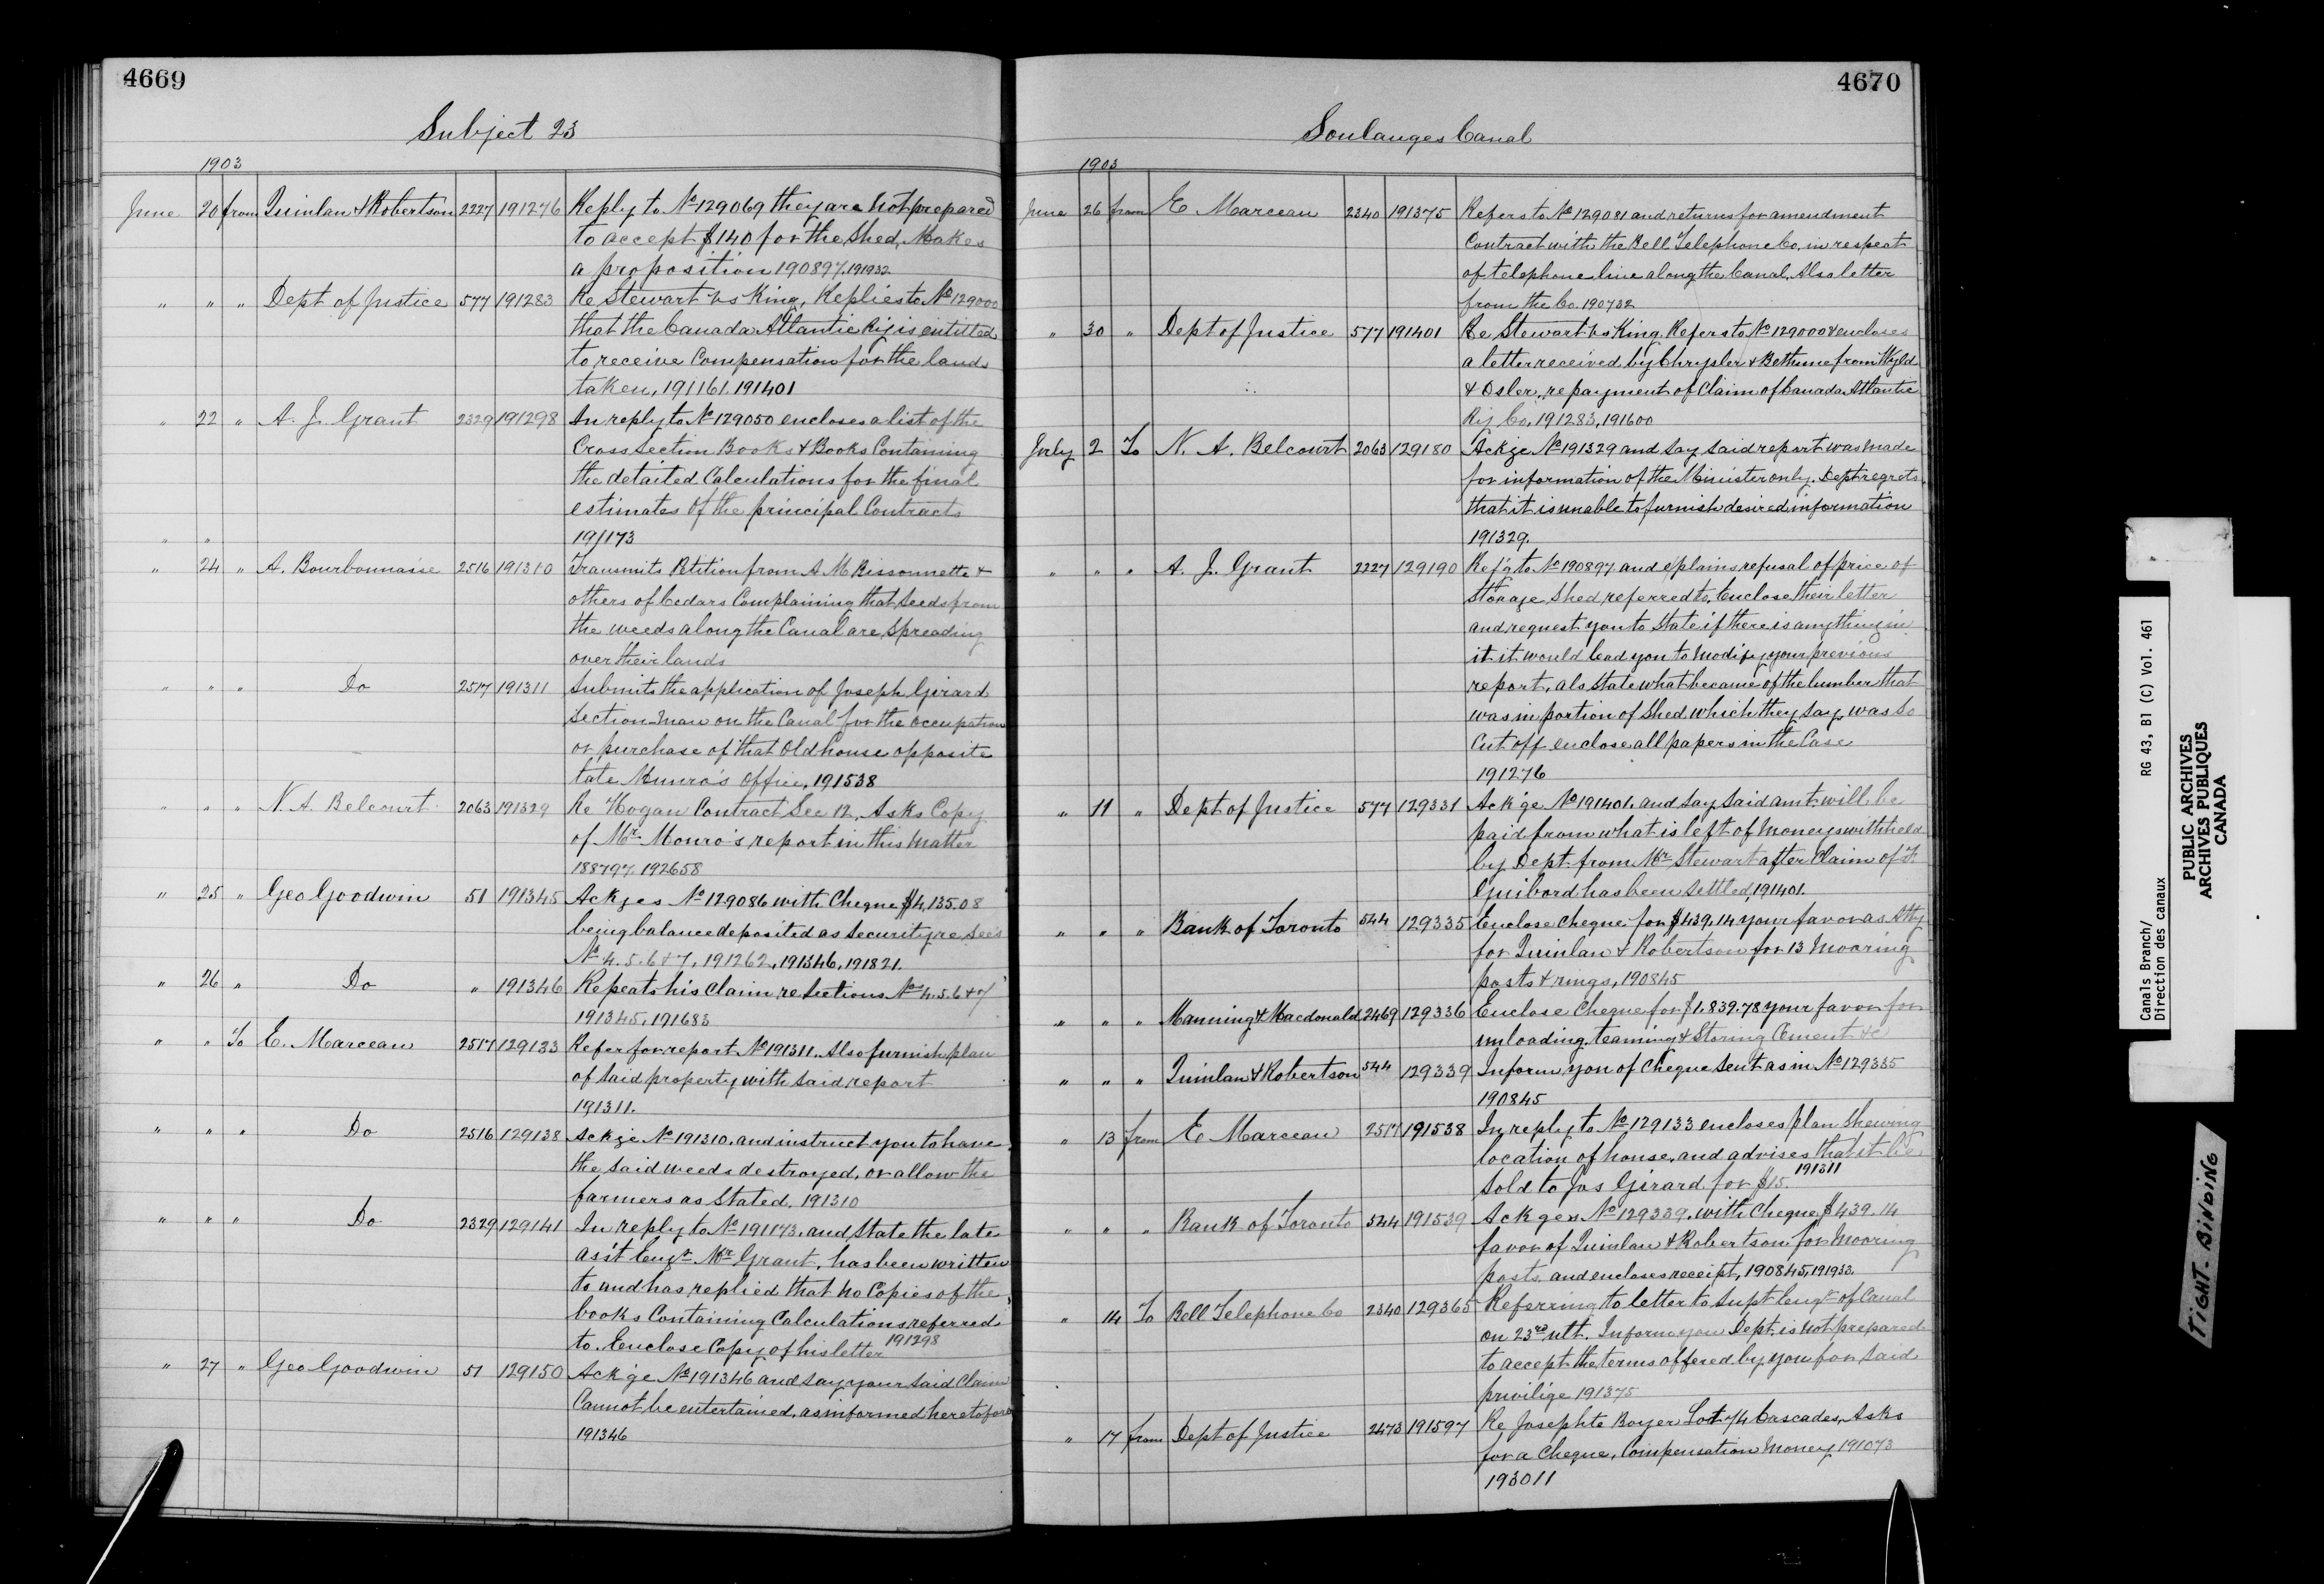 4669
Subject 23
1903
June 20 from Quinlan & Robertson 2227 191276 Reply to No 129069 they are not prepared
to accept $140 for the Shed, Makes
a proposition 190897. 191932
" " " Dept of Justice 577 191283 Re Stewart vs King, Replies to No 129000
that the Canada Atlantic Ry is entitled
to receive Compensation for the lands
taken, 191161. 191401
" 22 " A. J. Grant 2329 191298 In reply to No 129050 encloses a list of the
Cross Section Books & Books Containing
the detailed Calculations for the final
estimates of the principal Contracts
" " 191173
" 24 " A. Bourbonnaise 2516 191310 Transmits Petition from A M Bissonnette &
others of Cedars Complaining that Seeds from
the weeds along the Canal are spreading
over their lands
" " " Do 2517 191311 Submits the application of Joseph Girard
Section-man on the Canal for the occupation
or purchase of that Old house opposite
late Munro's office, 191538
" " " N. A. Belcourt 2063 191329 Re Hogan Contract Sec 12, Asks Copy
of Mr Monro's report in this matter
188797 192658
" 25 " Geo Goodwin 51 191345 Ackges No 129086 with Cheque $4,135.08
being balance deposited as Security re Secs
No 4. 5. 6 & 7, 191262, 191346, 191821.
" 26 " Do " 191346 Repeats his Claim re Sections Nos 4. 5. 6 & 7
191345, 191683
" " To E. Marceau 2517 129133 Refer for report No 191311. Also furnish plan
of said property with said report
191311.
" " " Do 2516 129138 Ackge No 191310. and instruct you to have
the said weeds destroyed, or allow the
farmers as Stated. 191310
" " " Do 2329 129141 In reply to No 191173. and State the late
ass't Engr Mr Grant, has been written
to and has replied that no Copies of the
books Containing Calculations referred
to. Enclose Copy of his letter 191298
" 27 " Geo Goodwin 51 129150 Ack'ge No 191346 and say your said Claim
Cannot be entertained, as informed heretofore
191346
4670
Soulanges Canal
1903
June 26 from E Marceau 2340 191375 Refers to No 129081 and returns for amendment
Contract with the Bell Telephone Co. in respect
of telephone line along the Canal, Also letter
from the Co. 190732
" 30 " Dept of Justice 577 191401 Re Stewart vs King, Refers to No 129000 & encloses
a letter received by Chrysler & Bethune from Wyld
& Osler, re payment of Claim of Canada Atlantic
Ry Co, 191283, 191600
July 2 To N. A. Belcourt 2063 129180 Ackge No 191329 and say said report was made
for information of the Minister only. Dept regrets
that it is unable to furnish desired information
191329.
" " " A. J. Grant 2227 129190 Ref'g to No 190897 and explains refusal of price of
Storage Shed referred to, Enclose their letter
and request you to State if there is anything in
it it would lead you to modify your previous
report, als State what became of the lumber that
was in portion of Shed which they say was so
Cut off enclose all papers in the Case
191276
" 11 " Dept of Justice 577 129331 Ack'ge No 191401. and say said amt will be
paid from what is left of Moneys withheld
by Dept from Mr Stewart after Claim of F
Guibord has been Settled, 191401.
" " " Bank of Toronto 544 129335 Enclose cheque for $439.14 your favor as Atty
for Quinlan & Robertson for 13 Mooring
posts & rings, 190845
" " " Manning & Macdonald 2469 129336 Enclose Cheque for $1.839.78 your favor for
unloading, teaming & Storing Cement &c
" " " Quinlan & Robertson 544 129339 Inform you of Cheque Sent as in No 129335
190845
" 13 from E Marceau 2517 191538 In reply to No 129133 encloses plan Shewing
location of house, and advises that it be
Sold to Jos Girard for $15. 191311
" " " Bank of Toronto 544 191539 Ackges No 129339, with Cheque $439.14
favor of Quinlan & Robertson for Mooring
posts, and encloses receipt, 190845, 191933.
" 14 To Bell Telephone Co 2340 129365 Referring to letter to Supt Engr of Canal
on 23rd ult. Inform you Dept. is not prepared
to accept the terms offered by you for said
privilige 191375
" 17 from Dept of Justice 2473 191597 Re Josephte Boyer Lot 74 Cascades, Asks
for a Cheque, Compensation Money 191073
193011
Canals Branch/
Direction des canaux
RG 43, B1 (C) Vol. 461
PUBLIC ARCHIVES
ARCHIVES PUBLIQUES
CANADA
TIGHT. BINDING